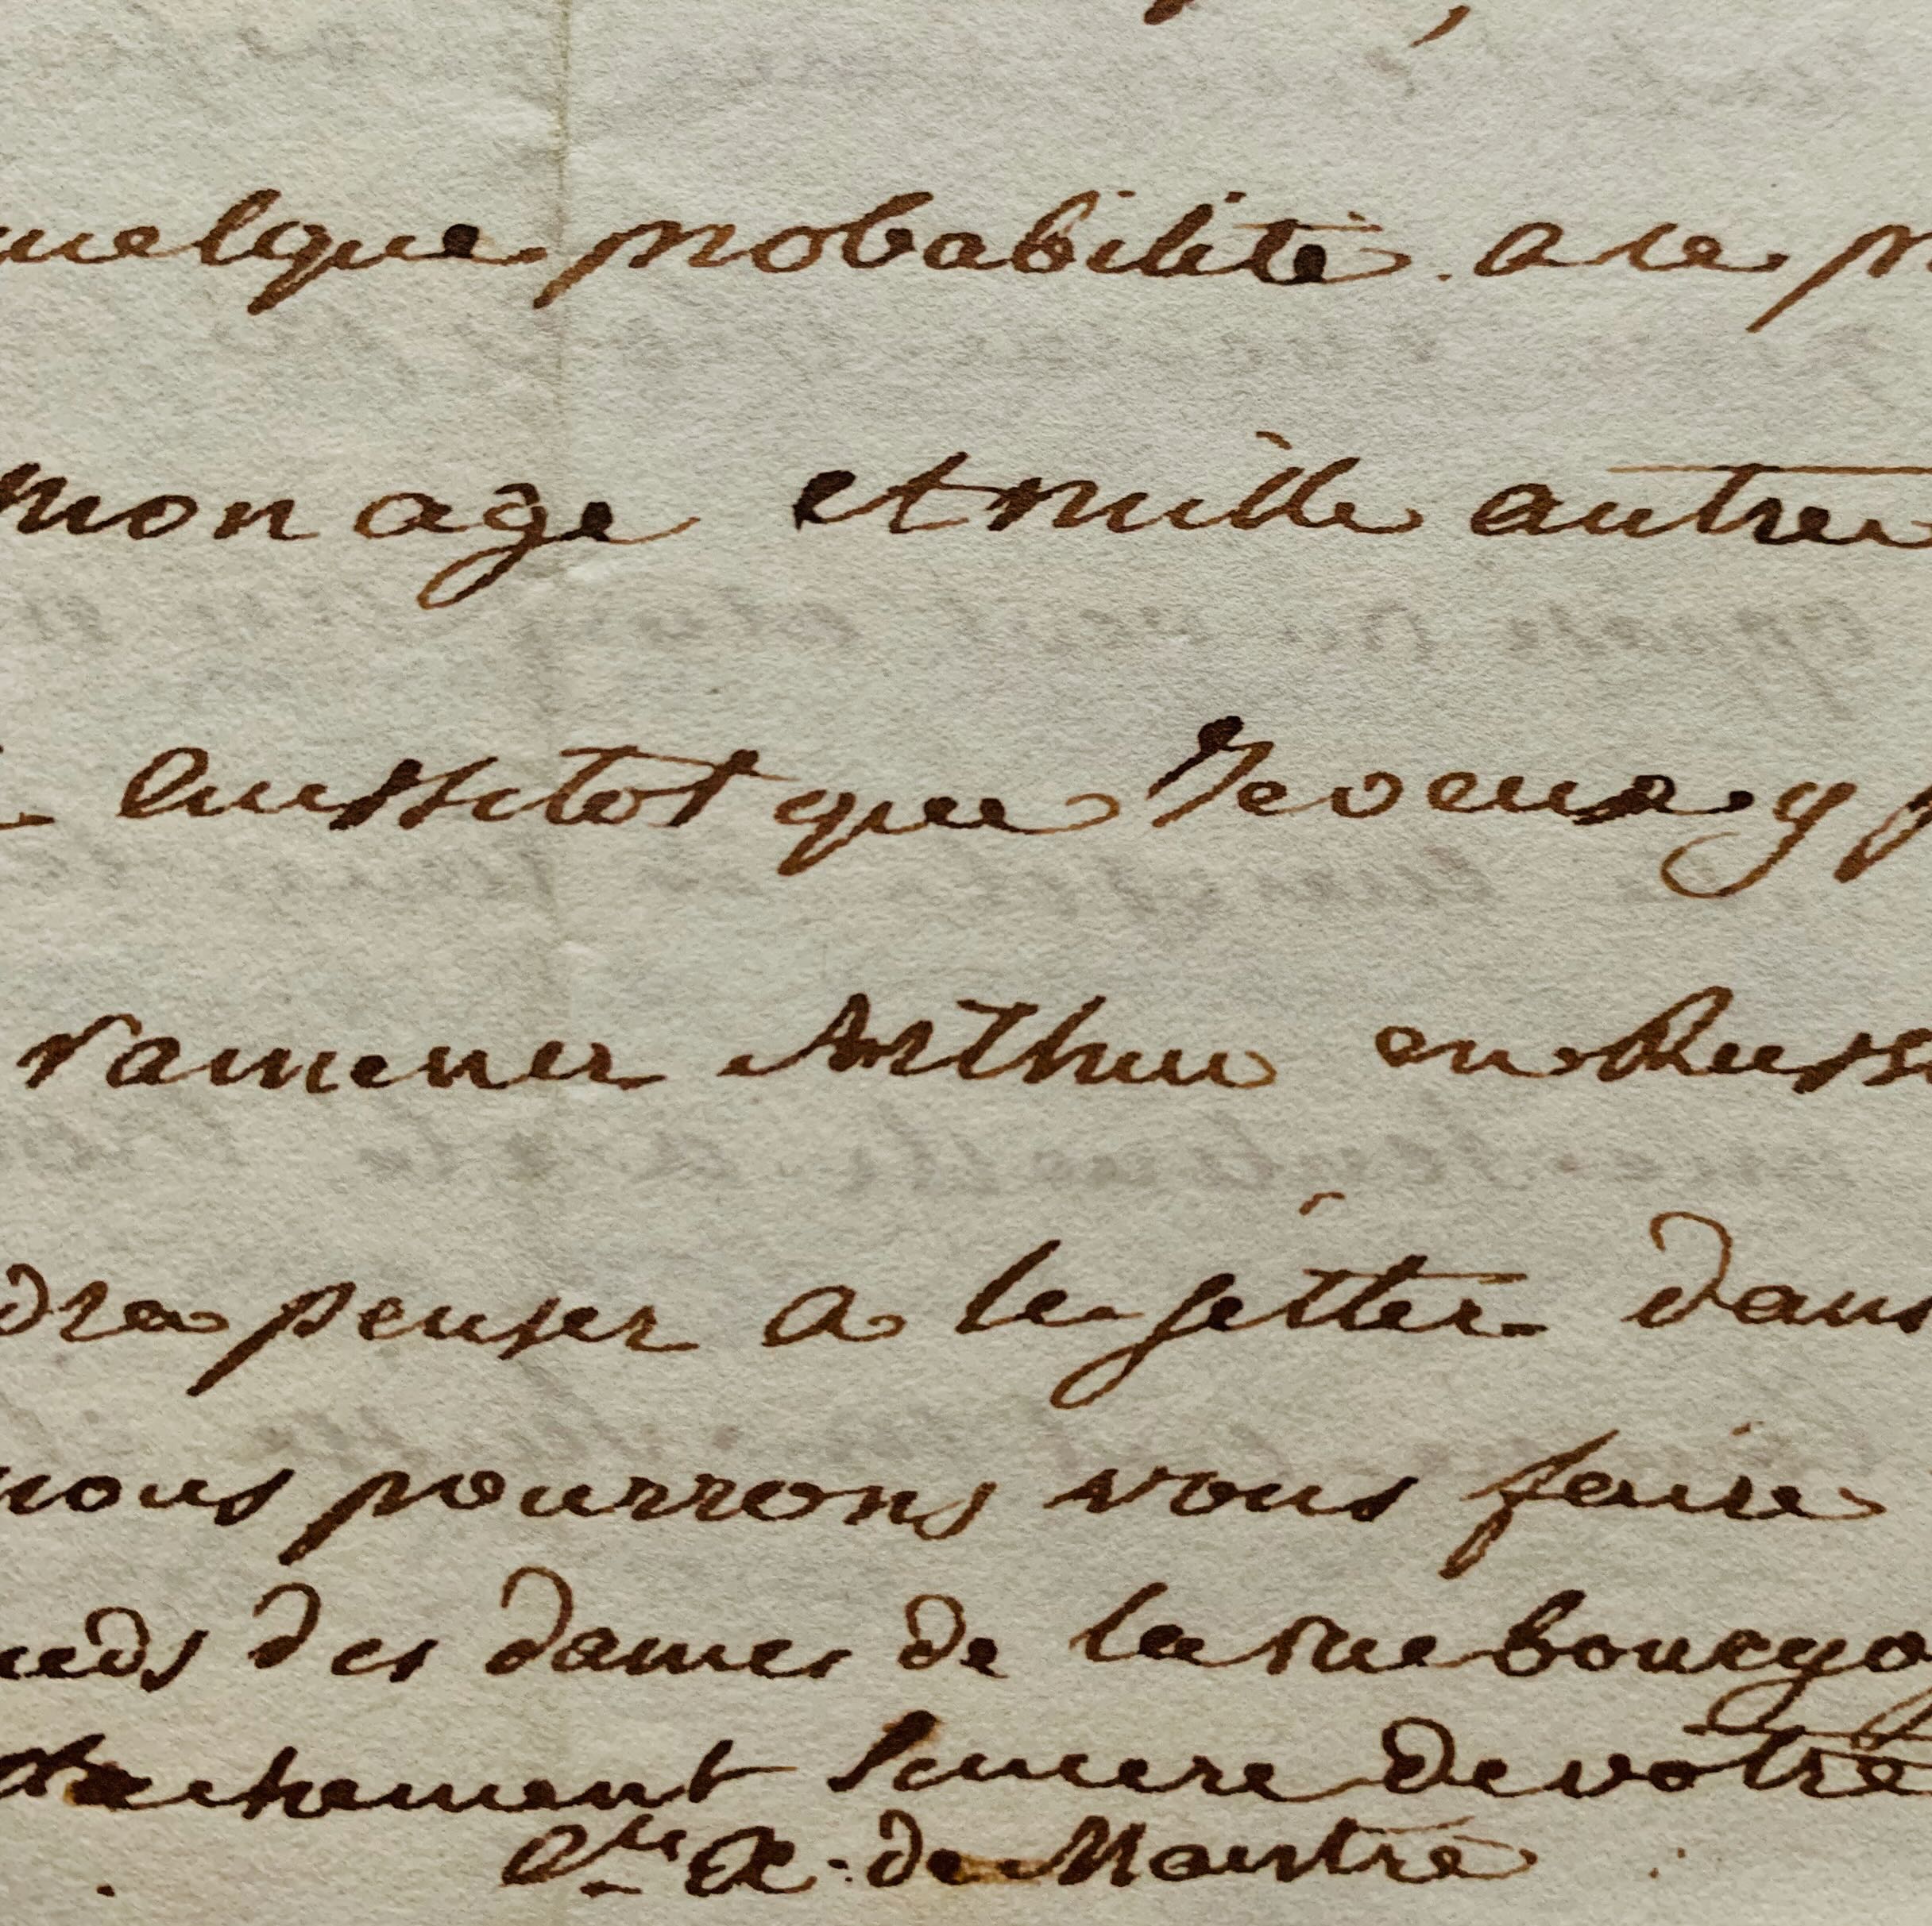 quelque probabilité. a ce p
mon age et mille autre
aussitot que Je veux y p
ramener Arthur en Russi
dra penser a le jetter dans
nous pourrons vous faire
ieds des dames de la rue bourgog
ttachement sincere de votre
Cte X. de Maistre